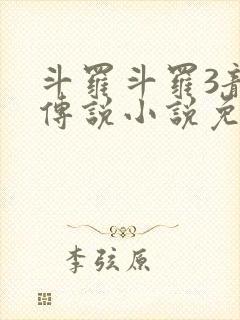 斗羅斗羅3
傳說小說免
李弦原